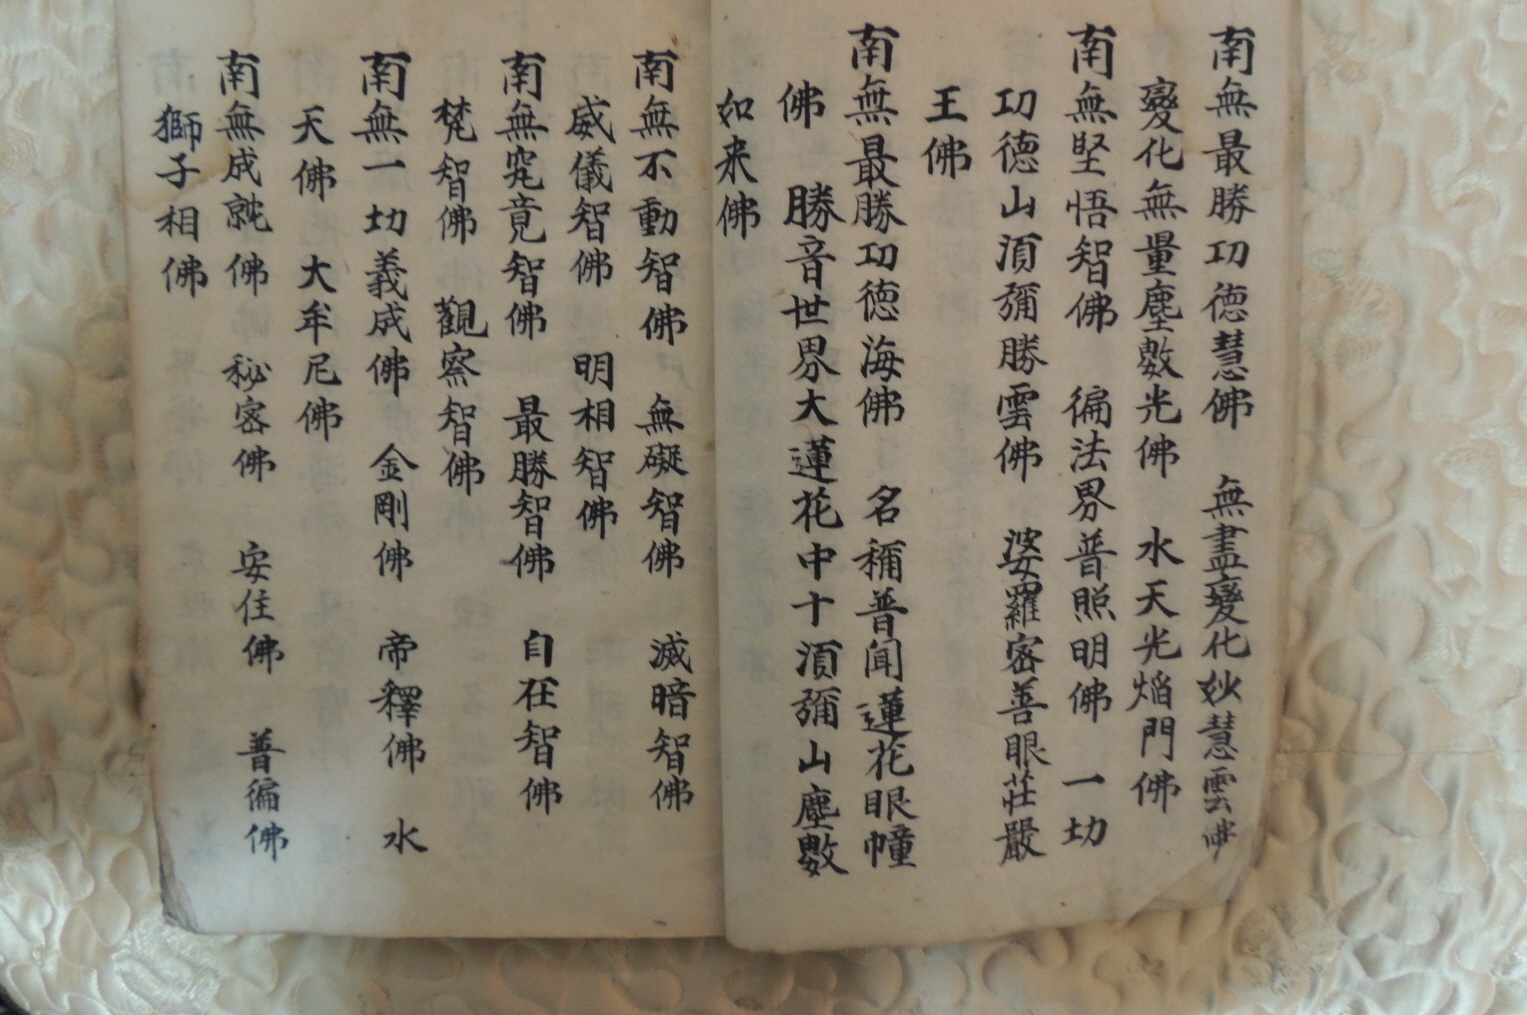 南無最勝功德慧佛　無盡變化妙慧雲佛
變化無量塵數光佛　水天光焰門佛
南無堅悟智佛　徧法界普照明佛　一切
功德山湏彌勝雲佛　娑羅密善眼莊嚴
王佛
南無最勝功德海佛　名稱普聞蓮花眼幢
佛　勝音世界大蓮花中十湏彌山塵數
如来佛
南無不動智佛　無礙智佛　滅暗智佛
威儀智佛　明相智佛
南無究竟智佛　最勝智佛　自在智佛
梵智佛　觀察智佛
南無一切義成佛　金剛佛　帝釋佛　水
天佛　大牟尼佛
南無成就佛　秘密佛　安住佛　普徧佛
獅子相佛